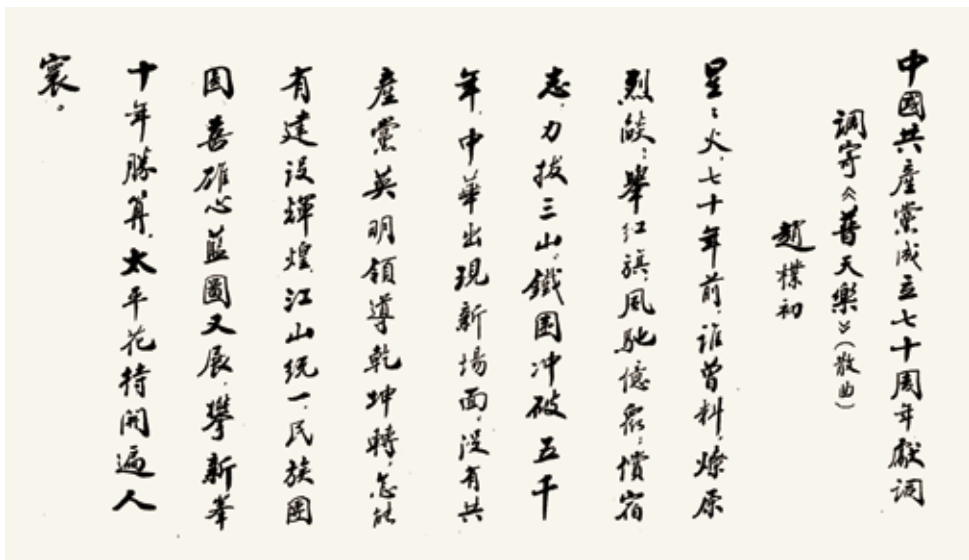 中國共產黨成立七十周年獻詞
調寄《普天樂》（散曲）
趙樸初
星：火，七十年前，誰曾料，燎原
烈燄；舉紅旗，風馳億衆；償宿
志，力拔三山。鐵圍冲破五千
年，中華出現新場面，沒有共
產黨英明領導乾坤轉，怎能
有建設輝煌，江山統一，民族團
圓。喜雄心藍圖又展，攀新峯
十年勝算，太平花待開遍人
寰。